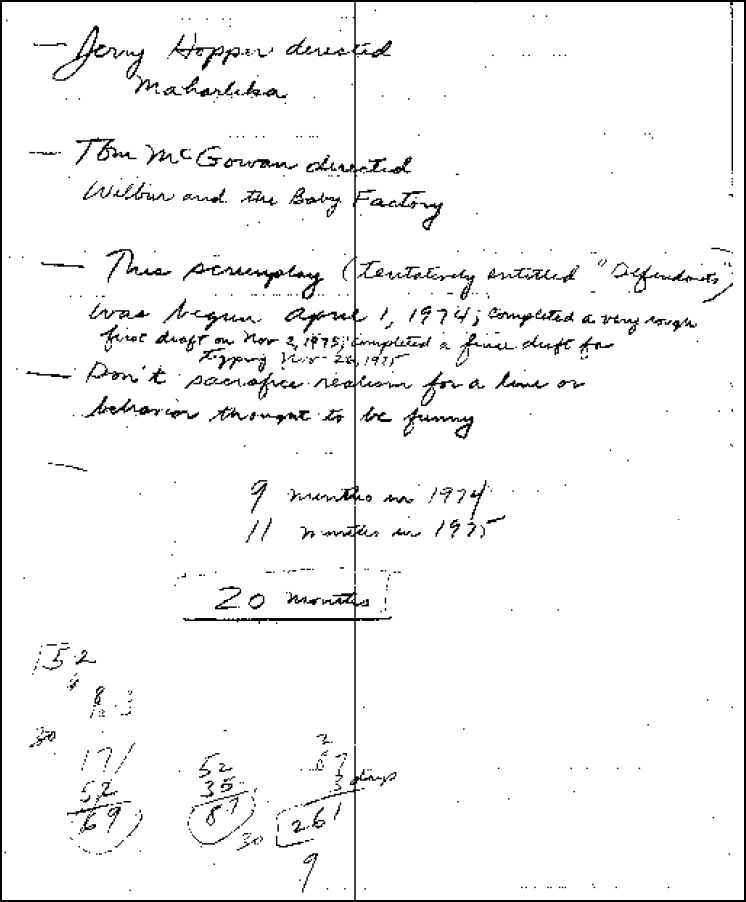 — Jerry Hopper directed
Maharlika
— Tom McGowan directed
Wilbur and the Baby Factory
— This screenplay (tentatively entitled "Defendants")
was begun April 1, 1974; completed a very rough
first draft on Nov 2, 1975; completed a final draft for
typing Nov 26, 1975
— Don't sacrifice realism for a line or
behavior thought to be funny
—
9 months in 1974
11 months in 1975
20 months
52
8
30
17
52 35 67
52 3 days
69 87 261
30
9